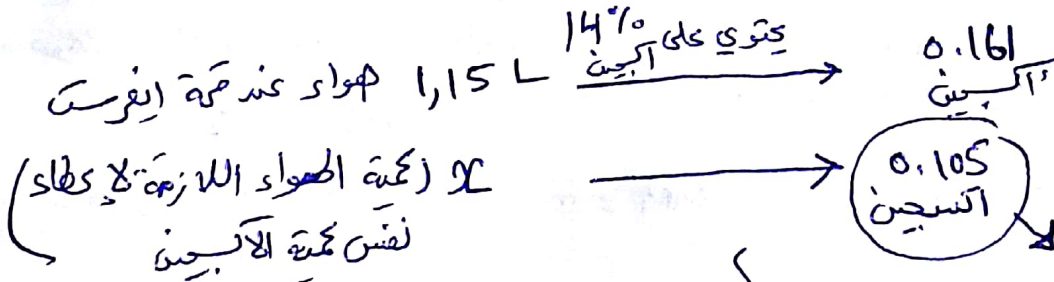 1,15 L هواء عند قمة إيفرست يحتوي على 14% أكسجين 0.161 أكسجين
x (كمية الهواء اللازمة لإعطاء نفس كمية الأكسجين 0.105 أكسجين